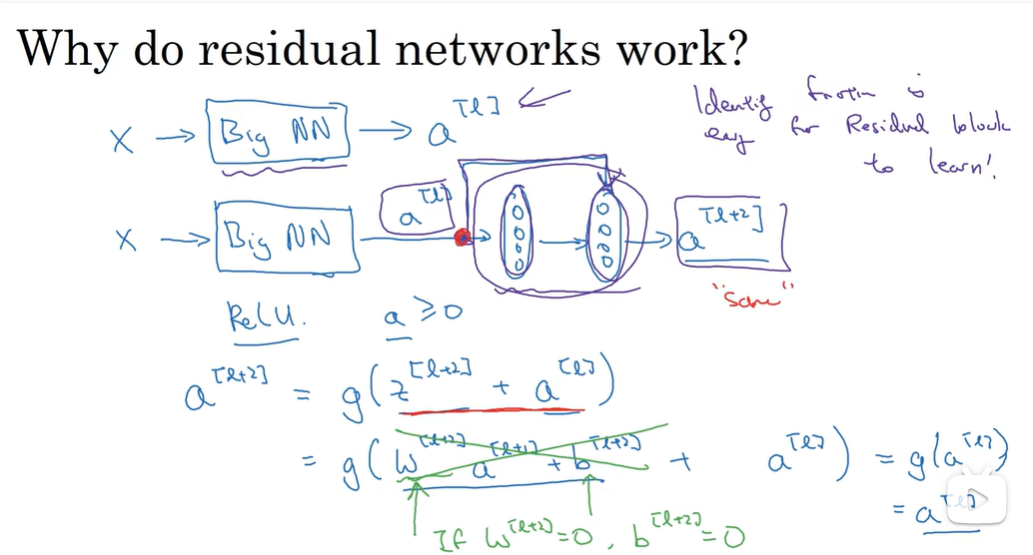 Why do residual networks work?
X → Big NN → a^[l]
Identity function is
easy for Residual block
to learn!
X → Big NN a^[l] → a^[l+2]
"same"
ReLU. a ≥ 0
a^[l+2] = g(z^[l+2] + a^[l])
= g(W^[l+2] a^[l+1] + b^[l+2] + a^[l]) = g(a^[l])
= a^[l]
If W^[l+2] = 0, b^[l+2] = 0